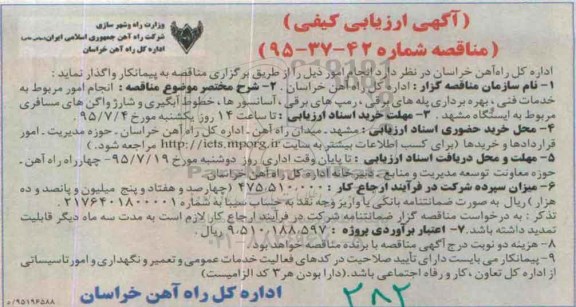 وزارت راه وشهر سازی
شرکت راه آهن جمهوری اسلامی ایران (سهامی خاص)
اداره کل راه آهن خراسان
(آگهی ارزیابی کیفی)
(مناقصه شماره ۴۲-۳۷-۹۵)
اداره کل راه‌آهن خراسان در نظر دارد انجام امور ذیل را از طریق برگزاری مناقصه به پیمانکار واگذار نماید :
۱- نام سازمان مناقصه گزار : اداره کل راه آهن خراسان . ۲- شرح مختصر موضوع مناقصه : انجام امور مربوط به
خدمات فنی ، بهره برداری پله های برقی ، رمپ های برقی ، آسانسور ها ، خطوط آبگیری و شارژ واگن های مسافری
مربوط به ایستگاه مشهد . ۳- مهلت خرید اسناد ارزیابی : تا ساعت ۱۴ روز یکشنبه مورخ ۹۵/۷/۴
۴- محل خرید حضوری اسناد ارزیابی : مشهد ـ میدان راه آهن ـ اداره کل راه آهن خراسان ـ حوزه مدیریت ـ امور
قراردادها و خریدها (برای کسب اطلاعات بیشتر به سایت http://iets.mporg.ir مراجعه شود.)
۵- مهلت و محل دریافت اسناد ارزیابی : تا پایان وقت اداری روز دوشنبه مورخ ۹۵/۷/۱۹- چهارراه راه آهن ـ
حوزه معاونت توسعه مدیریت و منابع ـ دبیرخانه اداره کل راه آهن خراسان
۶- میزان سپرده شرکت در فرآیند ارجاع کار : ۴۷۵,۵۱۰,۰۰۰ (چهارصد و هفتاد و پنج میلیون و پانصد و ده
هزار) ریال به صورت ضمانتنامه بانکی یا واریز وجه نقد به حساب سیبا به شماره ۲۱۷۶۴۰۱۸۰۰۰۰۱
تذکر : به درخواست مناقصه گزار ضمانتنامه شرکت در فرآیند ارجاع کار لازم است به مدت سه ماه دیگر قابلیت
تمدید داشته باشد.۷- اعتبار برآوردی پروژه : ۹,۵۱۰,۱۸۸,۵۹۷ ریال.
۸- هزینه دو نوبت درج آگهی مناقصه با برنده مناقصه خواهد بود.
۹- پیمانکار می بایست دارای تأیید صلاحیت در کدهای فعالیت خدمات عمومی و تعمیر و نگهداری و امور تاسیساتی
از اداره کل تعاون ، کار و رفاه اجتماعی باشد.(دارا بودن هر ۳ کد الزامیست)
اداره کل راه آهن خراسان
۲۸۲
۰/۹۵۱۹۶۵۸۸